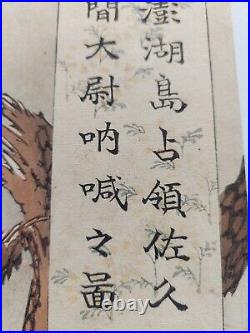 澎湖島占領佐久
間大尉吶喊之圖